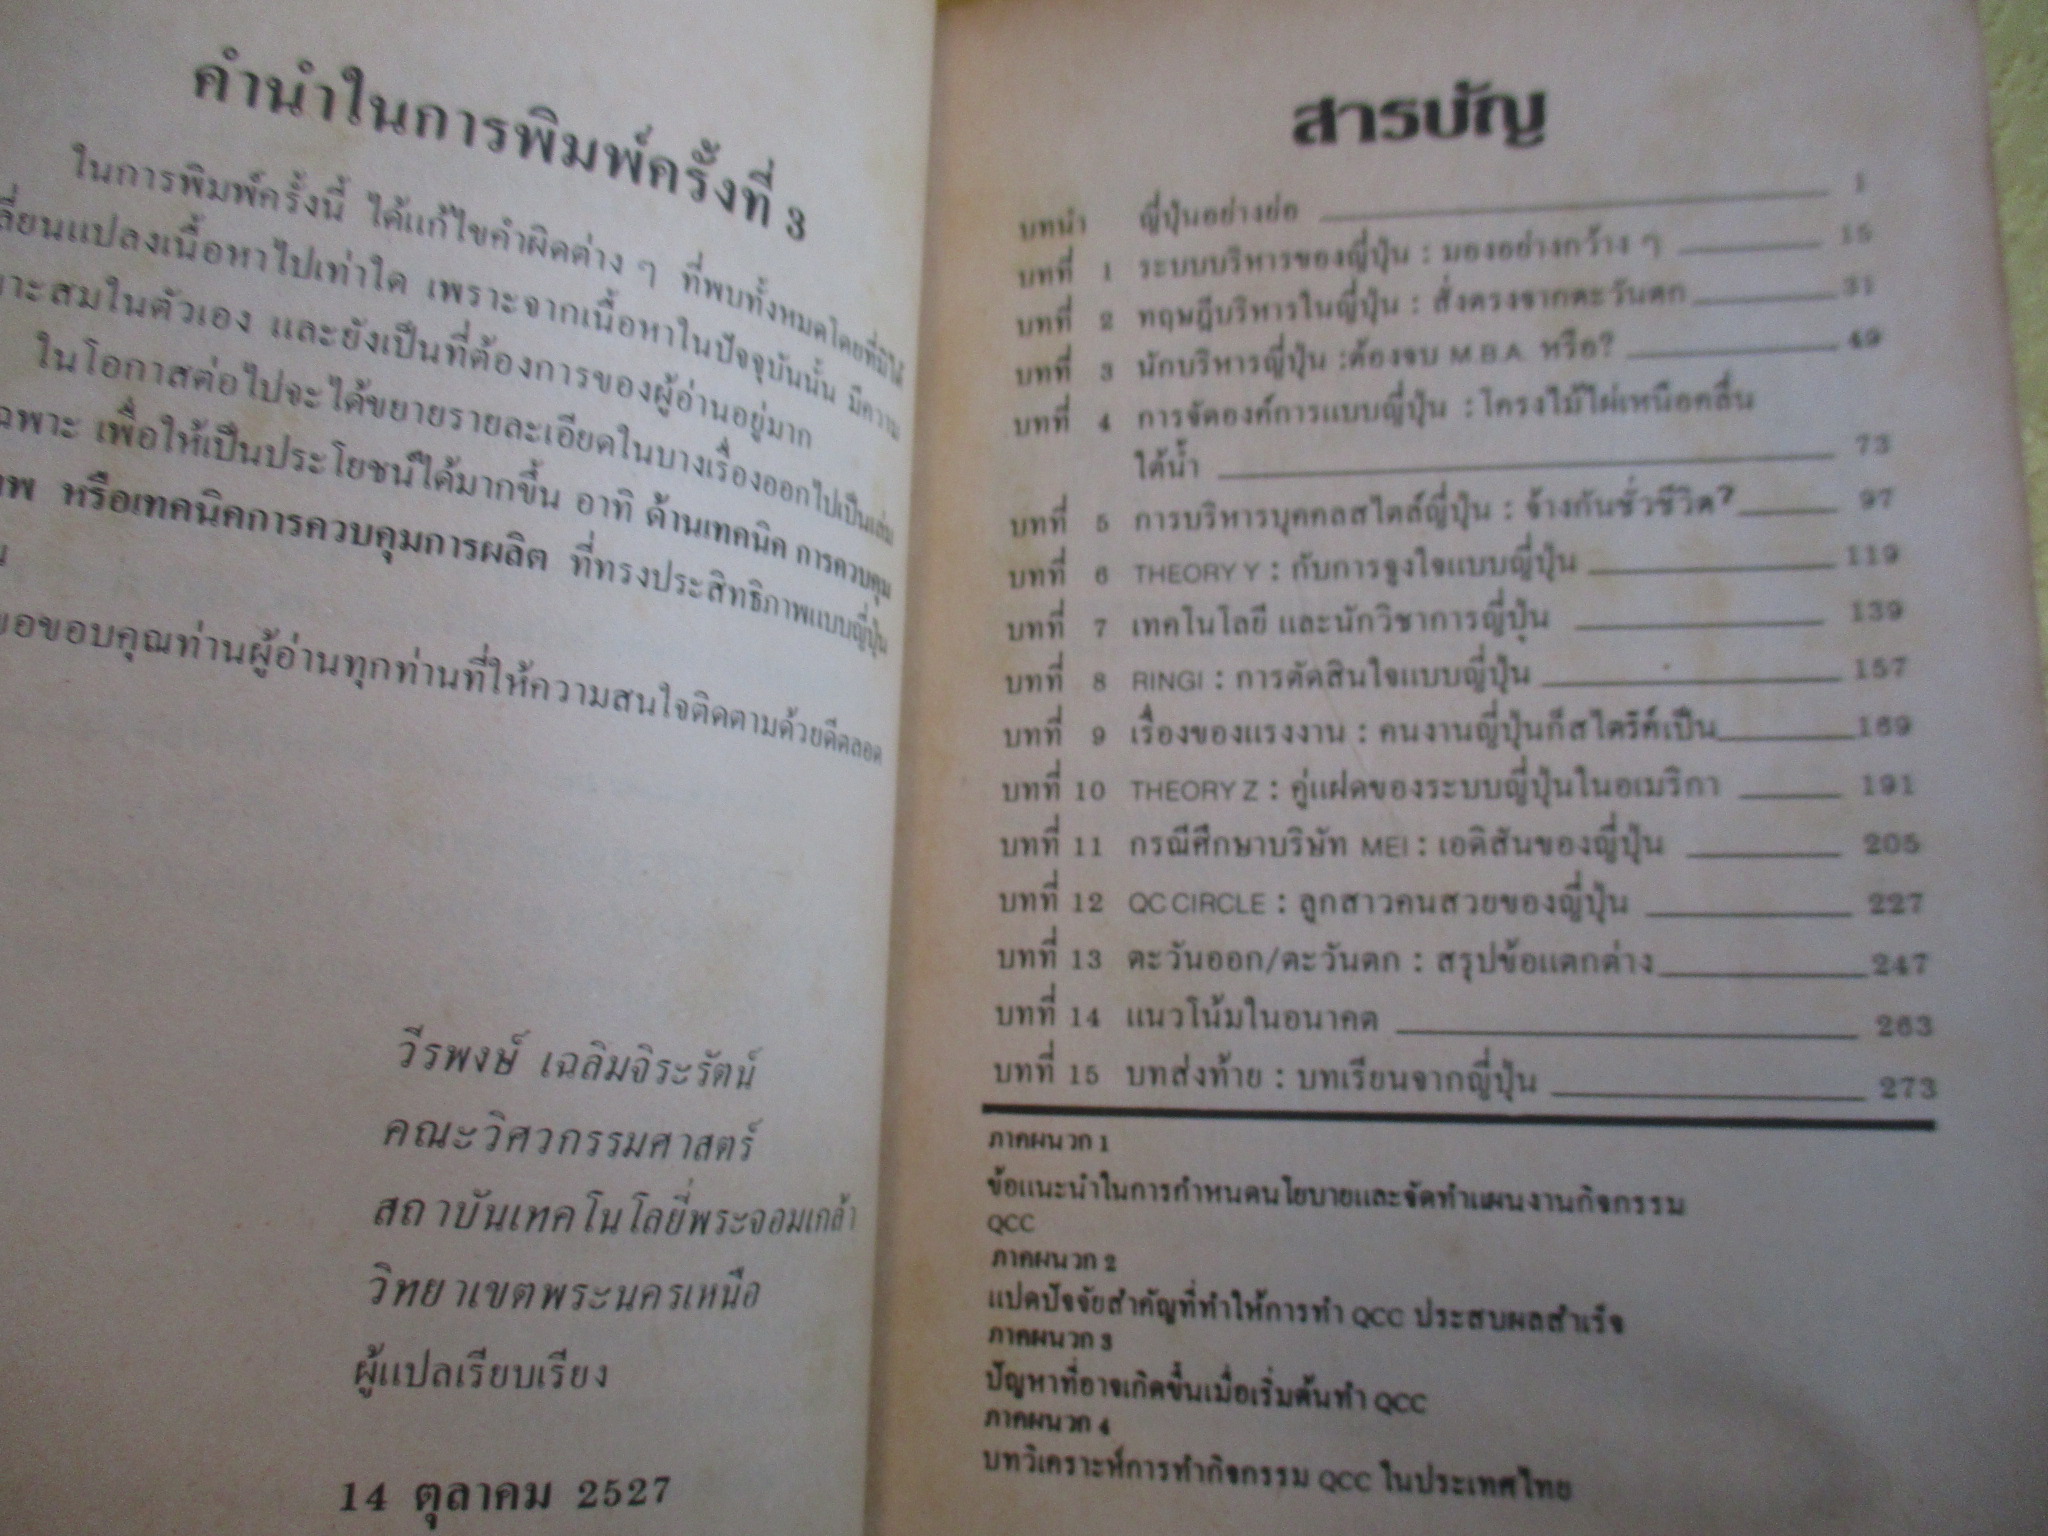 คำนำในการพิมพ์ครั้งที่ 3
ในการพิมพ์ครั้งนี้ ได้แก้ไขคำผิดต่าง ๆ ที่พบทั้งหมดโดยที่มิได้
ลี่ยนแปลงเนื้อหาไปเท่าใด เพราะจากเนื้อหาในปัจจุบันนั้น มีความ
าะสมในตัวเอง และยังเป็นที่ต้องการของผู้อ่านอยู่มาก
ในโอกาสต่อไปจะได้ขยายรายละเอียดในบางเรื่องออกไปเป็นเล่ม
ฉพาะ เพื่อให้เป็นประโยชน์ได้มากขึ้น อาทิ ด้านเทคนิค การควบคุม
าพ หรือเทคนิคการควบคุมการผลิต ที่ทรงประสิทธิภาพแบบญี่ปุ่น
น
ขอขอบคุณท่านผู้อ่านทุกท่านที่ให้ความสนใจติดตามด้วยดีตลอด
วีรพงษ์ เฉลิมจิระรัตน์
คณะวิศวกรรมศาสตร์
สถาบันเทคโนโลยี่พระจอมเกล้า
วิทยาเขตพระนครเหนือ
ผู้แปลเรียบเรียง
14 ตุลาคม 2527
สารบัญ
บทนำ ญี่ปุ่นอย่างย่อ 1
บทที่ 1 ระบบบริหารของญี่ปุ่น : มองอย่างกว้าง ๆ 15
บทที่ 2 ทฤษฎีบริหารในญี่ปุ่น : สั่งตรงจากตะวันตก 31
บทที่ 3 นักบริหารญี่ปุ่น :ต้องจบ M.B.A. หรือ? 49
บทที่ 4 การจัดองค์การแบบญี่ปุ่น : โครงไม้ไผ่เหนือคลื่น
ใต้น้ำ 73
บทที่ 5 การบริหารบุคคลสไตล์ญี่ปุ่น : จ้างกันชั่วชีวิต? 97
บทที่ 6 THEORY Y : กับการจูงใจแบบญี่ปุ่น 119
บทที่ 7 เทคโนโลยี และนักวิชาการญี่ปุ่น 139
บทที่ 8 RINGI : การตัดสินใจแบบญี่ปุ่น 157
บทที่ 9 เรื่องของแรงงาน : คนงานญี่ปุ่นก็สไตร๊ค์เป็น 169
บทที่ 10 THEORY Z : คู่แฝดของระบบญี่ปุ่นในอเมริกา 191
บทที่ 11 กรณีศึกษาบริษัท MEI : เอดิสันของญี่ปุ่น 205
บทที่ 12 QC CIRCLE : ลูกสาวคนสวยของญี่ปุ่น 227
บทที่ 13 ตะวันออก/ตะวันตก : สรุปข้อแตกต่าง 247
บทที่ 14 แนวโน้มในอนาคต 263
บทที่ 15 บทส่งท้าย : บทเรียนจากญี่ปุ่น 273
ภาคผนวก 1
ข้อแนะนำในการกำหนดนโยบายและจัดทำแผนงานกิจกรรม
QCC
ภาคผนวก 2
แปดปัจจัยสำคัญที่ทำให้การทำ QCC ประสบผลสำเร็จ
ภาคผนวก 3
ปัญหาที่อาจเกิดขึ้นเมื่อเริ่มต้นทำ QCC
ภาคผนวก 4
บทวิเคราะห์การทำกิจกรรม QCC ในประเทศไทย